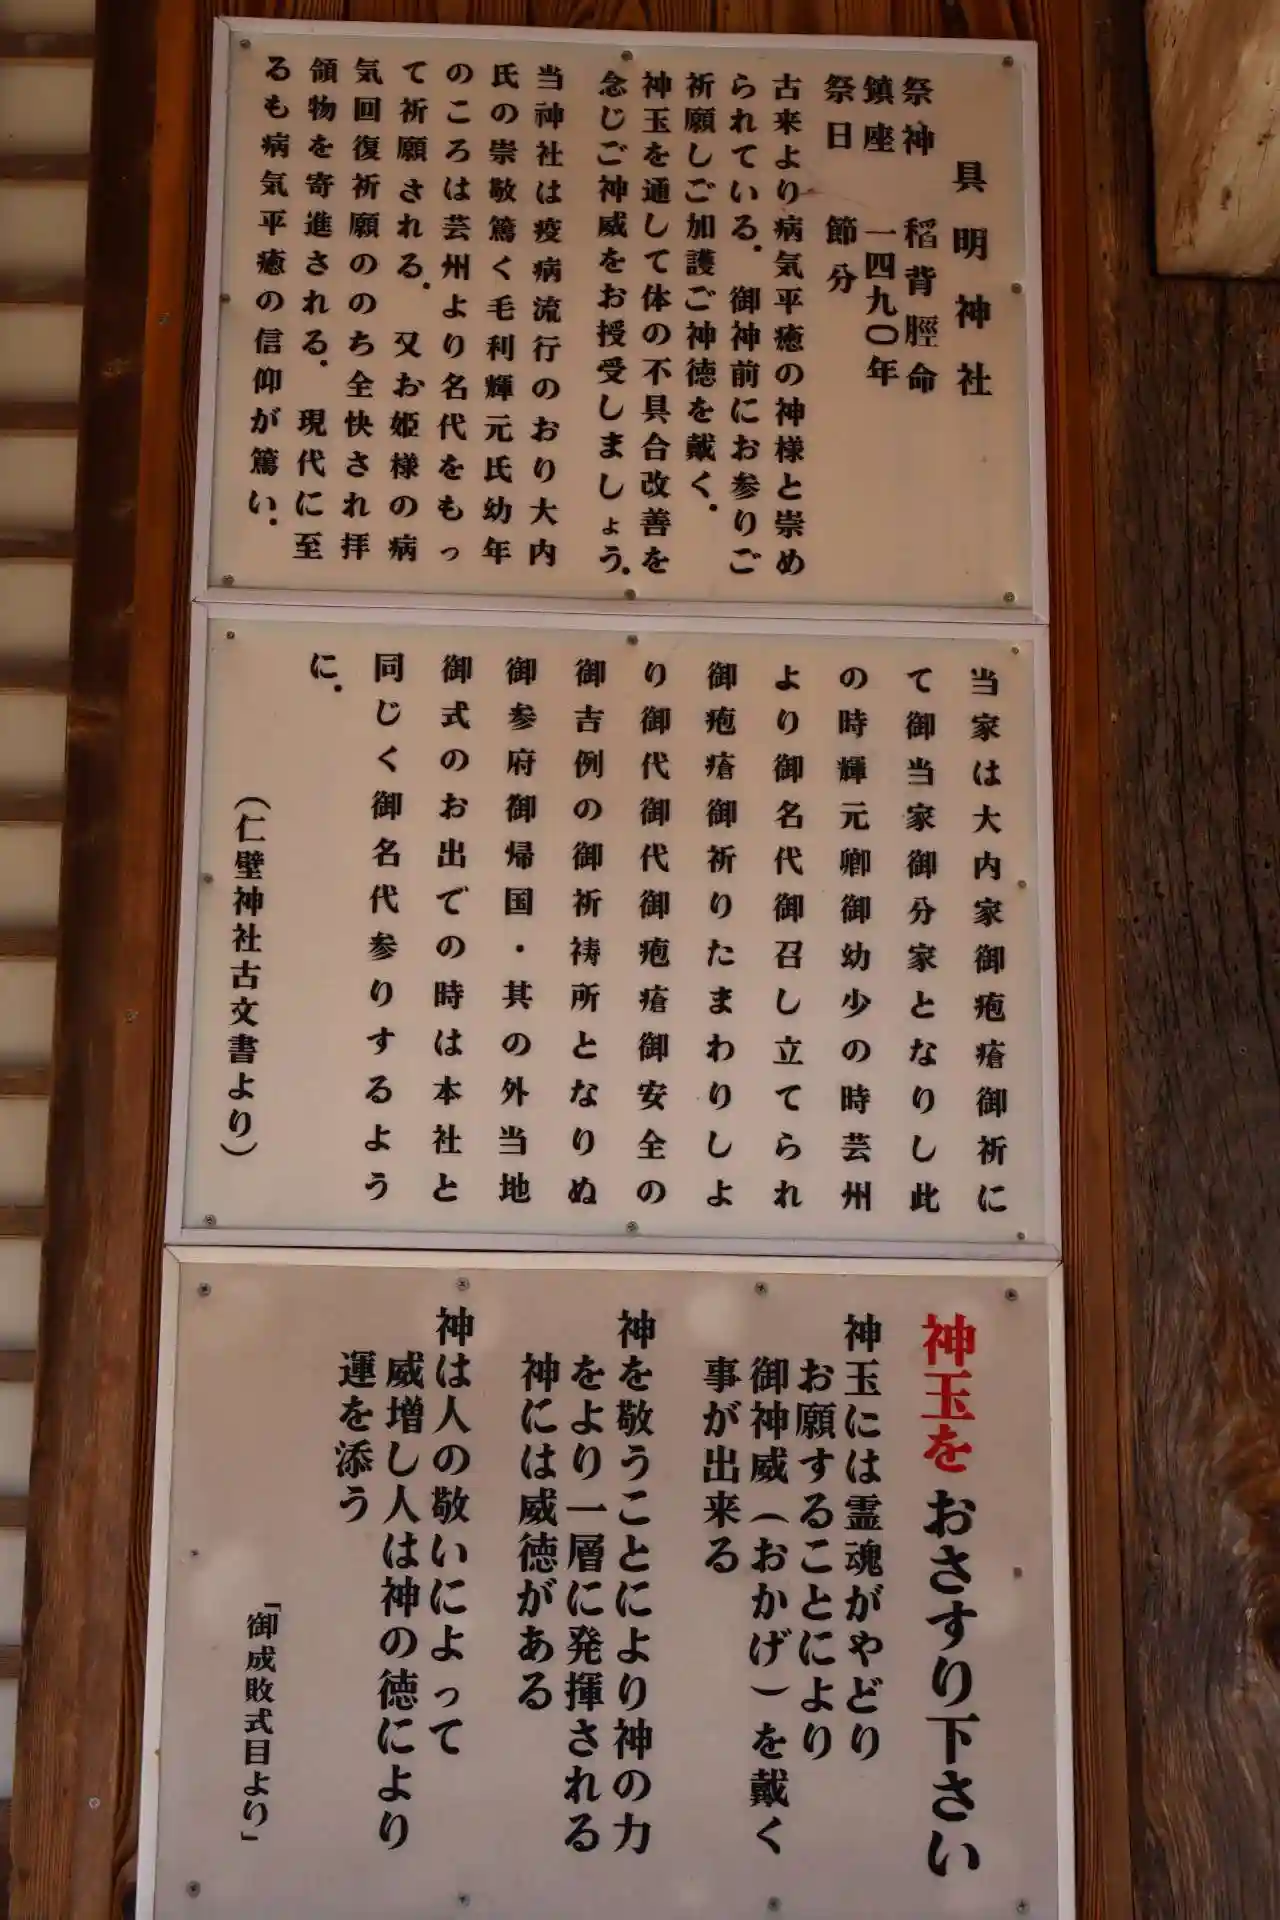 具明神社
祭神 稲背脛命
鎮座 一四九〇年
祭日 節分
古来より病気平癒の神様と崇め
られている。 御神前にお参りご
祈願しご加護ご神徳を戴く。
神玉を通して体の不具合改善を
念じご神威をお授受しましょう。
当神社は疫病流行のおり大内
氏の崇敬篤く毛利輝元氏幼年
のころは芸州より名代をもっ
て祈願される。 又お姫様の病
気回復祈願ののち全快され拝
領物を寄進される。 現代に至
るも病気平癒の信仰が篤い。
当家は大内家御疱瘡御祈に
て御当家御分家となりし此
の時輝元卿御幼少の時芸州
より御名代御召し立てられ
御疱瘡御祈りたまわりしよ
り御代御代御疱瘡御安全の
御吉例の御祈祷所となりぬ
御参府御帰国・其の外当地
御式のお出での時は本社と
同じく御名代参りするよう
に。
（仁壁神社古文書より）
神玉をおさすり下さい
神玉には霊魂がやどり
お願することにより
御神威（おかげ）を戴く
事が出来る
神を敬うことにより神の力
をより一層に発揮される
神には威徳がある
神は人の敬いによって
威増し人は神の徳により
運を添う
「御成敗式目より」